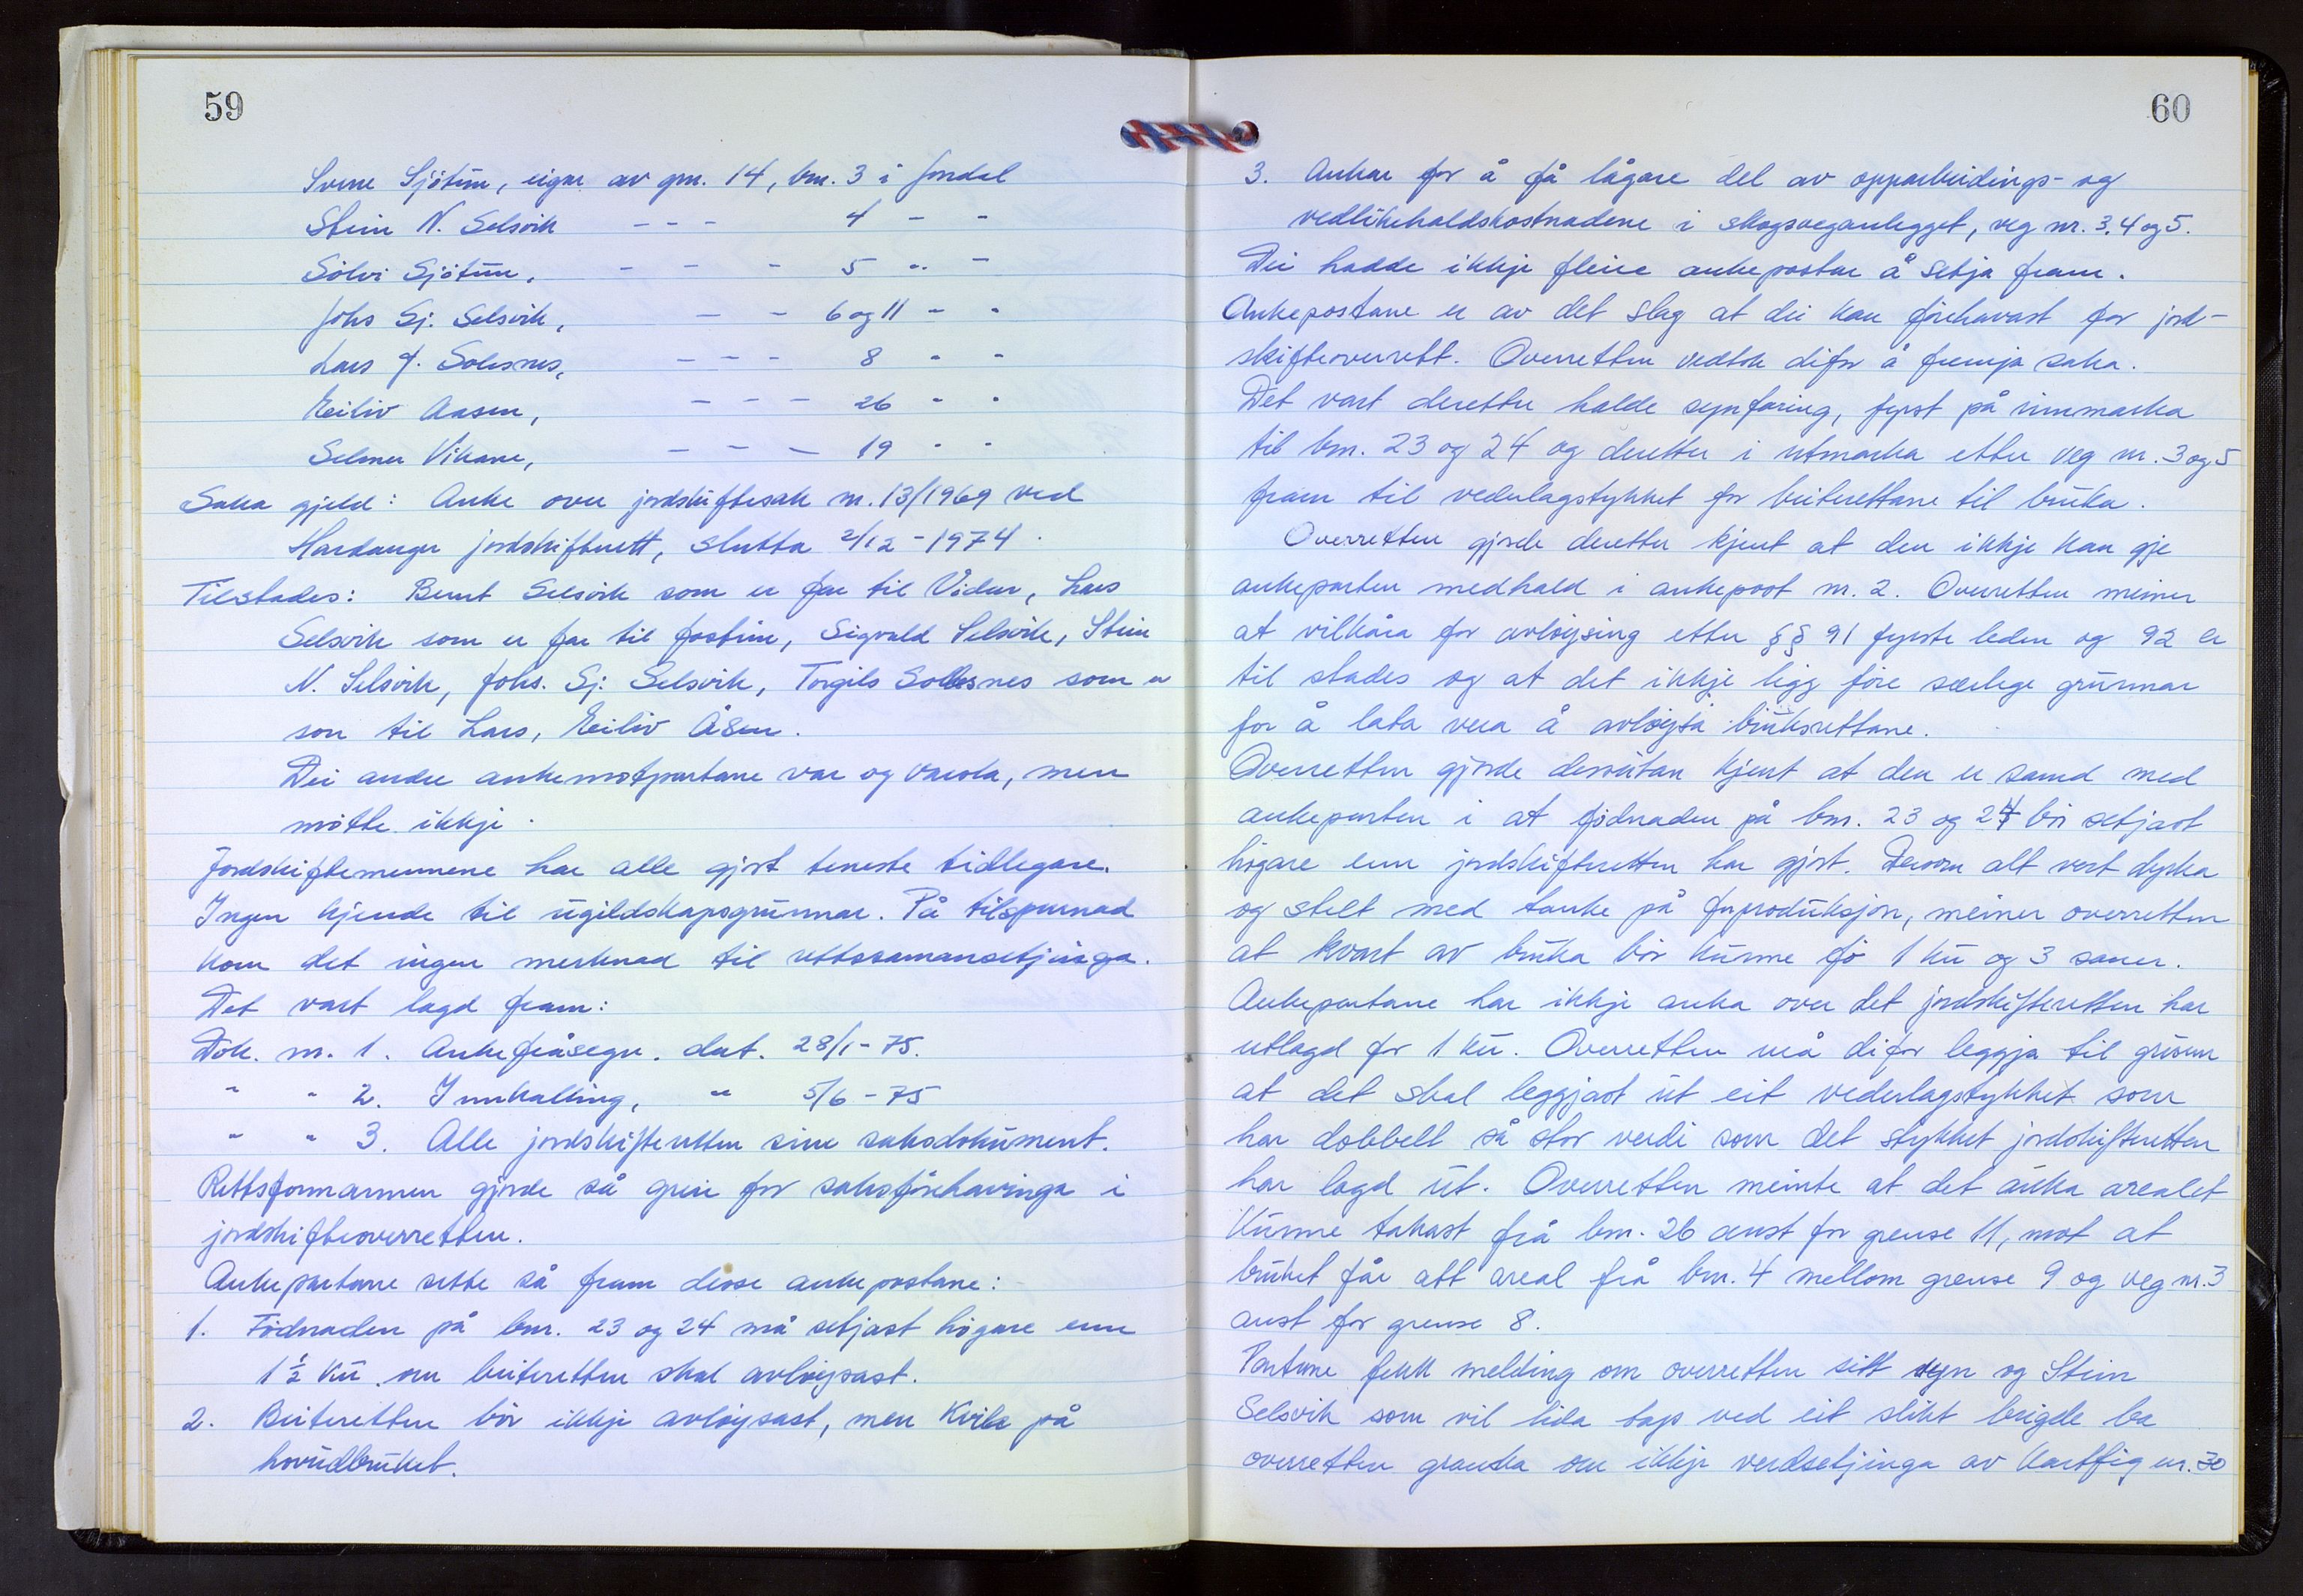 59
Sverre Sjötun, eigar av gnr. 14, bnr. 3 i Jondal
Stein N. Selsvik - - - 4 - -
Sölvi Sjötun, - - - 5 - -
Johs Sj. Selsvik, - - 6 og 11 - -
Lars J. Solesnes, - - - 8 - -
Eiliv Aasen, - - - 26 - -
Selmer Vikane, - - - 19 - -
Saka gjeld: Anke over jordskiftesak nr. 13/1969 ved
Hardanger jordskifterett, slutta 2/12-1974.
Tilstades: Bernt Selsvik som er far til Vidar, Lars
Selsvik som er far til Jostein, Sigvald Selsvik, Stein
N. Selsvik, Johs. Sj. Selsvik, Torgils Solesnes som er
son til Lars, Eiliv Åsen.
Dei andre ankemotpartane var og varsla, men
møtte ikkje.
Jordskiftemennene har alle gjort teneste tidlegare.
Ingen kjende til ugildskapsgrunnar. På tilspurnad
kom det ingen merknad til rettssamansetjinga.
Det vart lagd fram:
Dok. nr. 1. Ankefråsegn. dat. 28/1-75.
" " 2. Innkalling, " 5/6-75
" " 3. Alle jordskifteretten sine saksdokument.
Rettsformannen gjorde så greie for saksförehavinga i
jordskifteoverretten.
Ankepartane sette så fram desse ankepostane:
1. Födnaden på bnr. 23 og 24 må setjast högare enn
1 1/2 ku om beiteretten skal avlöysast.
2. Beiteretten bör ikkje avlöysast, men kvile på
hovudbruket.
60
3. Ankar for å få lågare del av opparbeidings- og
vedlikehaldskostnadene i skogsveganlegget, veg nr. 3, 4 og 5.
Dei hadde ikkje fleire ankepostar å setja fram.
Ankepostane er av det slag at dei kan förehavast for jord-
skifteoverrett. Overretten vedtok difor å fremja saka.
Det vart deretter halde synfaring, fyrst på innmarka
til bnr. 23 og 24 og deretter i utmarka etter veg nr. 3 og 5
fram til vederlagstykket for beiterettane til bruka.
Overretten gjorde deretter kjent at den ikkje kan gje
ankeparten medhald i ankepost nr. 2. Overretten meiner
at vilkåra for avlöysing etter §§ 91 fyrste leden og 92 er
til stades og at det ikkje ligg före særlege grunnar
for å lata vera å avlöysa bruksrettane.
Overretten gjorde dessutan kjent at den er samd med
ankeparten i at födnaden på bnr. 23 og 24 bör setjast
högare enn jordskifteretten har gjort. Dersom alt vert dyrka
og stelt med tanke på forproduksjon, meiner overretten
at kvart av bruka bör kunne fö 1 ku og 3 sauer.
Ankepartane har ikkje anka over det jordskifteretten har
utlagd for 1 ku. Overretten må difor leggja til grunn
at det skal leggjast ut eit vederlagstykket som
har dobbelt så stor verdi som det stykket jordskifteretten
har lagd ut. Overretten meinte at det auka arealet
kunne takast frå bnr. 26 aust for grense 11, mot at
bruket får att areal frå bnr. 4 mellom grense 9 og veg nr. 3
aust for grense 8.
Partane fekk melding om overretten sitt syn og Stein
Selsvik som vil lida taps ved eit slikt brigde ba
overretten granska om ikkje verdsetjinga av kartfig nr. 30